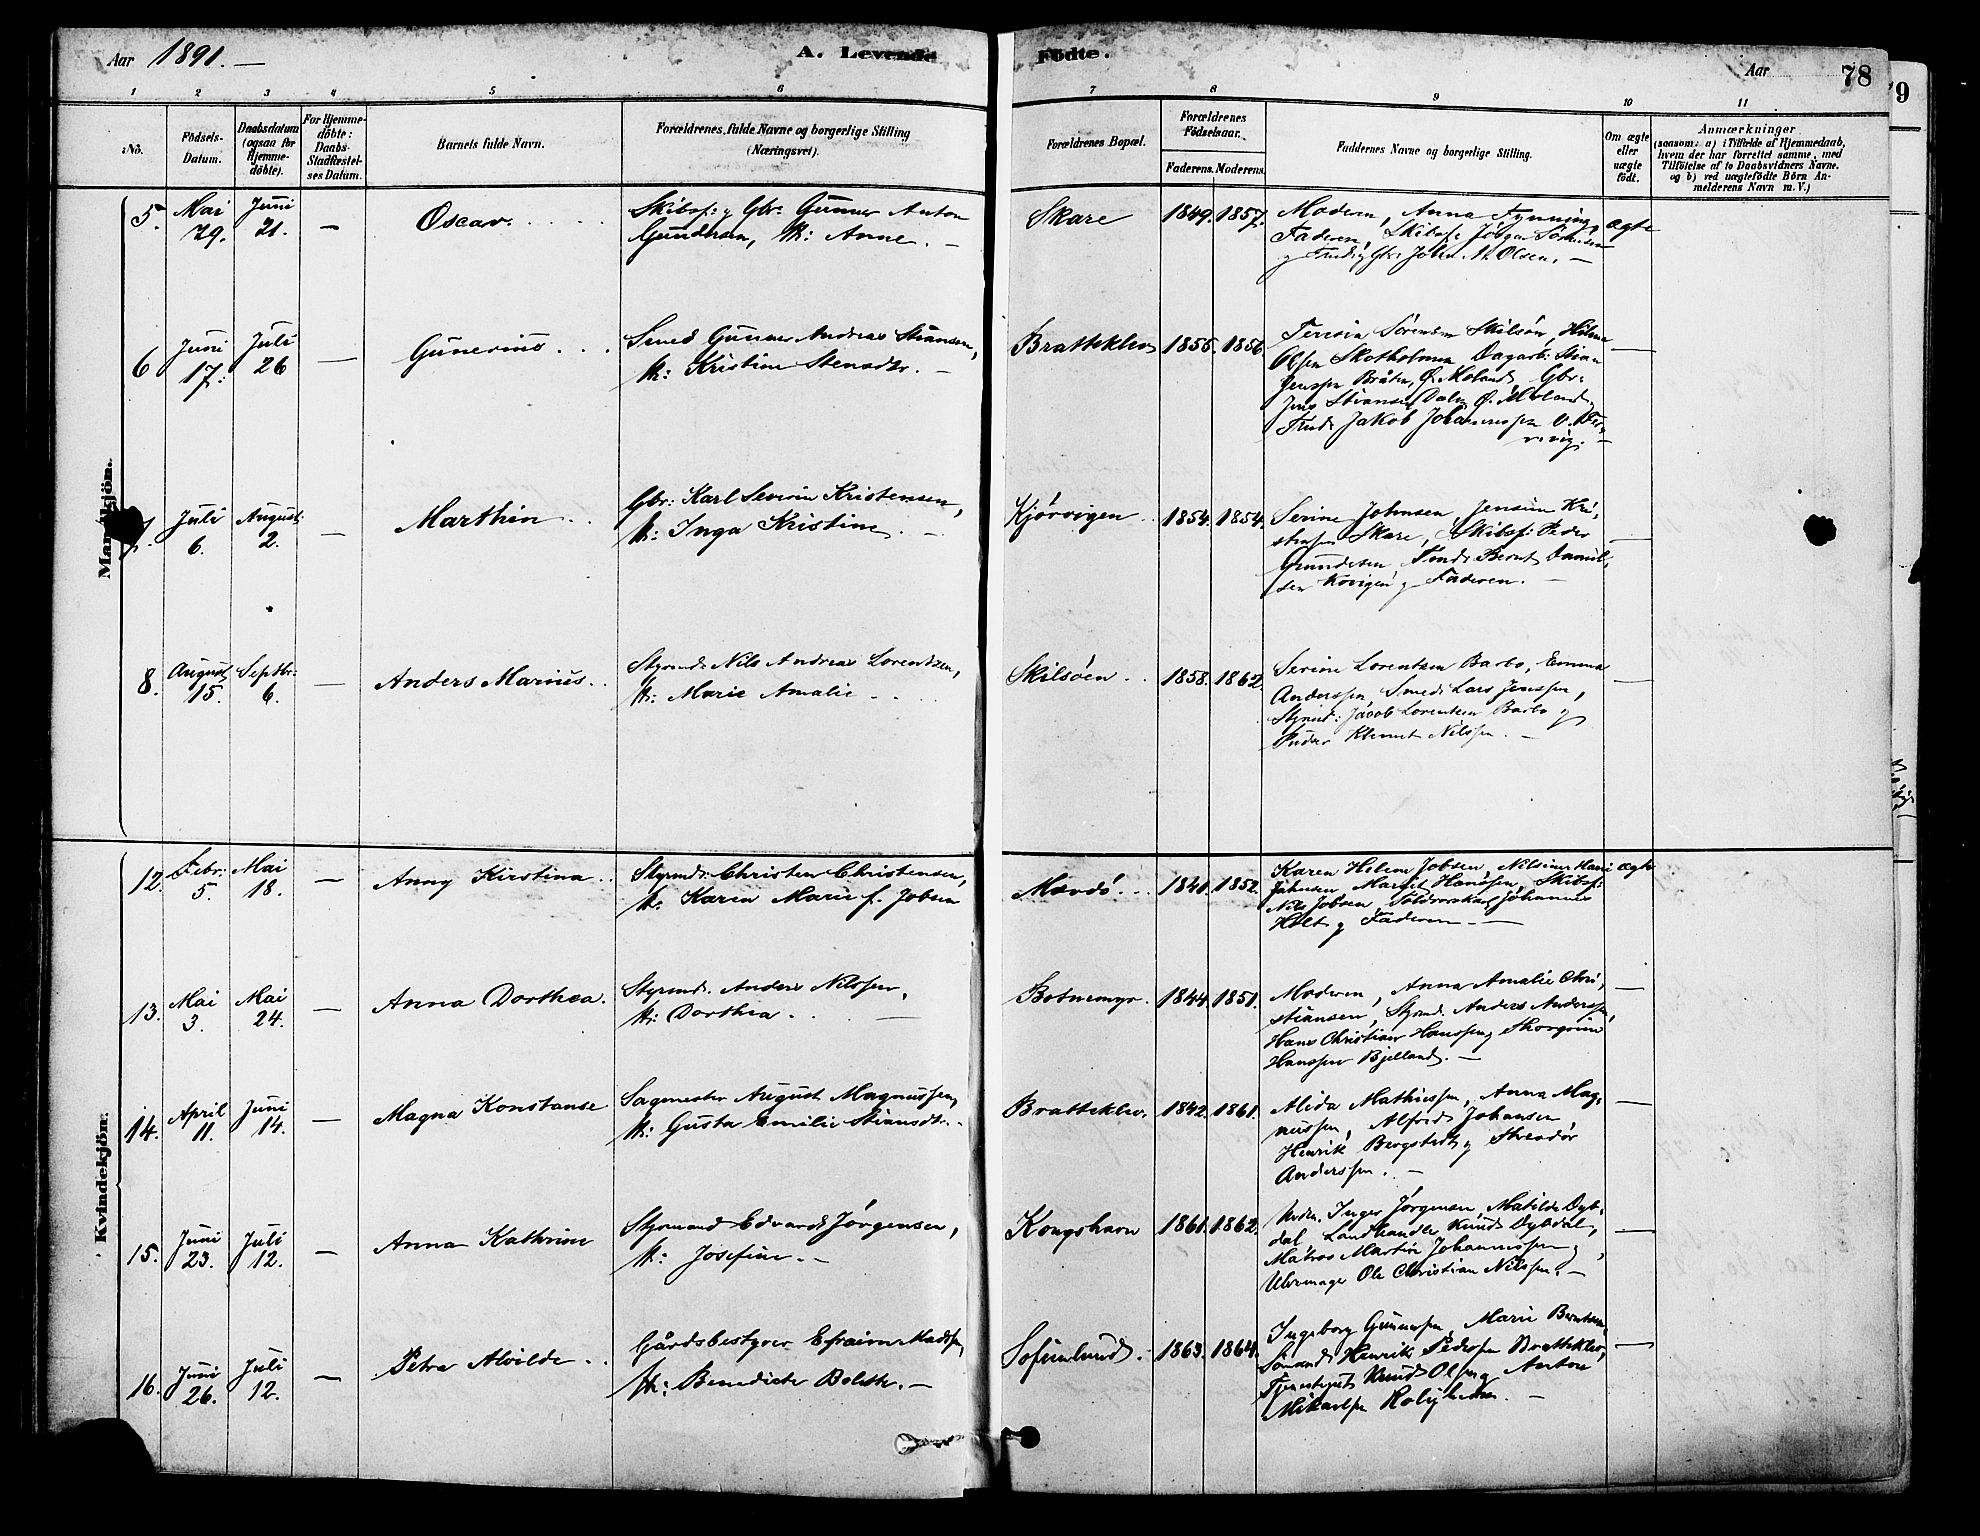 Aar 1891. —
A. Levende Födte.
Aar
78
9
1 2 3 4 5 6 7 8 9 10 11
No.
Födsels-
Datum.
Daabsdatum
(ogsaa for
Hjemme-
döbte).
For Hjemme-
döbte:
Daabs-
Stadfæstel-
ses Datum.
Barnets fulde Navn.
Forældrenes fulde Navne og borgerlige Stilling
(Næringsvei).
Forældrenes Bopæl.
Forældrenes
Födselsaar.
Faderens. Moderens.
Faddernes Navne og borgerlige Stilling.
Om ægte
eller
uægte
födt.
Anmærkninger
(saasom: a) i Tilfælde af Hjemmedaab,
hvem der har forrettet samme, med
Tilföielse af to Daabsvidners Navne,
og b) ved uægtefödte Börn An-
melderens Navn m. V.)
Mandkjön.
5. Mai 29. Juni 21. — Oscar.
Skibsf: g Gbr: Gunner Anton
Gundersen, H: Anne. —
Skare 1849. 1857.
Moderen, Anna Fynning,
Faderen, Skibsf: Jörgen
John M. Olsen. —
ægte
6 Juni 17. Juli 26 — Gunerius
Smed Gunner Andreas Stiansen,
H: Kristine Stensdtr. —
Bratteklev 1855. 1856
Teresia Sörensen Skilsön, Hilma
Olsen Skotholmen Dagarb: Stian
Jenssen Bråten, Ø. Moland, Gbr:
Jens Stiansen Dalen Ø. Moland,
Jakob Johannessen
—
7. Juli 6. August 2. — Marthin
Gbr: Karl Severin Kristensen,
H: Inga Kristine. —
Kjörvigen 1854. 1854.
Serine Johnsen, Jensine Kri-
stensen Skare, Skibsf: Peder
Gundersen, Bernt Daniel-
sen Kovigen g Faderen. —
—
8. August 15. Septbr: 6. — Anders Marius.
Styrmd: Nils Andreas Lorentsen,
H: Marie Amalie
Skilsöen 1858. 1862.
Serine Lorentsen Barbo, Emma
Anderssen, Smed: Lars Jenssen,
Styrmd: Jacob Lorentsen Barbo g
Klemet Nilssen. —
—
Kvindekjön.
12. Febr: 5. Mai 18. — Anny Kirstina
Styrmd: Christen Christensen,
H: Karen Marie f. Jobsen
Mærdö 1841. 1852.
Karen Helene Jobsen, Nilsine Marie
Johnsen, Margit Hanssen, Skibsf:
Nils Jobsen, Johannes
Holt g Faderen. —
ægte
13. Mai 3. Mai 24. — Anna Dorthea.
Styrmd. Anders Nilssen,
H: Dorthea. —
Botnemyr 1844. 1851.
Moderen, Anna Amalie Chri-
stiansen, Styrmd. Anders Anderssen,
Hans Christian Hanssen g Thorgrim
Hanssen Bjelland. —
—
14. April 11. Juni 14. — Magna Konstanse
Sagmester August Magnussen,
H: Gusta Emilie Stiansdtr.
Bratteklev. 1842. 1861.
Alida Mathiessen, Anna Mag-
nussen, Alfred Johansen
Henrik Bergstedt g Theodor
Anderssen. —
—
15. Juni 23. Juli 12. — Anna Kathrine
Styrmand Edvard Jörgensen,
H: Josefine. —
Kongshavn 1861. 1862.
Inger Jörgensen, Matilde Dyb-
dal, Landhandler Knud Dybdal,
Matros Martin Johannessen g
Uhrmager Ole Christian Nilssen. —
—
16. Juni 26. Juli 12. — Petra Alvilde
Gårdsbestyrer Efraim Madssen,
H: Benedicte Bolette. —
Sofienlund. 1863. 1864.
Ingeborg Gunnersen, Marie Berntsen,
Sömand Henrik Pederssen Bratteklev,
Knud Olsen g Anton
Mikaelsen
—